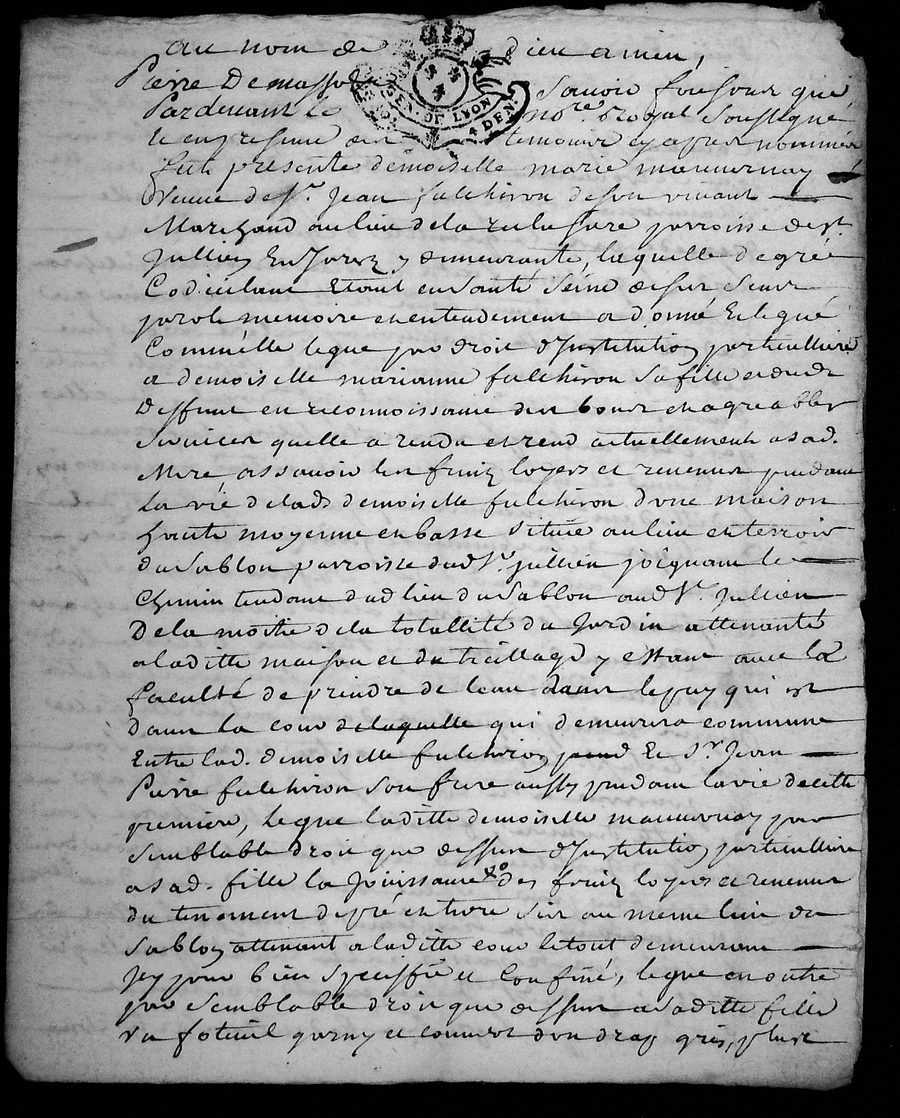 au nom de dieu amen,
Pierre Demasso
GEN. DE LYON
4 DEN.
Sçavoir faisons que
Pardevant le no.re royal soussigné
et en presence des temoins cy apres nommés
fut presente demoiselle marie mauvernay
veuve de Sr. Jean fulchiron de son vivant
Marchand au lieu de la parroisse de St.
Jullien En Jarez y demeurante, laquelle de gré
Codicillant Etant en santé Seine de ses sens
parole memoire et entendement a donné et legué
Comm'elle legue par droit d'Institution particulliere
a demoiselle marianne fulchiron sa fille et dudt
deffunt en reconnoissance des bons et agreables
services quelle a rendu et rend actuellement a sad.
Mere assavoir les fruiz loyers et revenus pendant
la vie de lade demoiselle fulchiron d'une maison
haute moyenne et basse située au lieu et terroir
du Sablon parroisse dud St. jullien joignant le
Chemin tendant dud lieu du Sablon aud St. Jullien
De la moitié de la totallité du Jardin attenante
a laditte maison et du treillage y estant avec la
faculté de prendre de leau dans le puy qui est
dans la cour de laquelle qui demeurera commune
Entre lad. demoiselle fulchiron pend Et Sr Jean
Pierre fulchiron son frere aussy pendant la vie de cette
premiere, legue laditte demoiselle mauvernay par
semblable droit que dessus d'Institution particulliere
a sad. fille la Jouissance des fruiz loyers et revenus
du tenement de pré et terre Sis au meme lieu du
Sablon attenant a laditte cour le tout demeurant
Icy pour bien speciffié et Confiné, legue en outre
par semblable droit que dessus a saditte fille
un foteuil garny et couvert d'un drap gris, plus